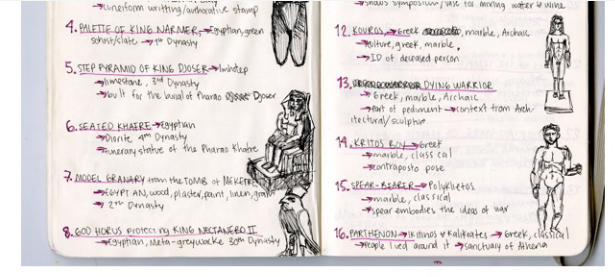 →cuneiform writting/authorative stamp
4. PALETTE OF KING NARMER→Egyptian, green
schist/slate →1st Dynasty
5. STEP PYRAMID OF KING DJOSER→Imhotep
→limestone, 3rd Dynasty
→built for the burial of Pharao Djoser
6. SEATED KHAFRE→Egyptian
→Diorite 4th Dynasty
→Funerary statue of the Pharao Khafre
7. MODEL GRANARY from the TOMB of MEKETRE
→EGYPTIAN, wood, plaster, paint, linen, grain
→ 2th Dynasty
8. GOD HORUS protecting KING NECTANEBO II
→Egyptian, Meta-greywacke 30th Dynasty
symposium/use for mixing water & wine
12. KOUROS→Greek, marble, Archaic
→ulture, greek, marble,
→ID of deceased person
13. DYING WARRIOR
→Greek, marble, Archaic
→Part of pediment→context from Arch-
itectural/sculptor
14. KRITOS BOY→Greek
→marble, classical
→contraposto pose
15. SPEAR-BEARER→Polykleitos
→marble, classical
→spear embodies the ideas of war
16. PARTHENON→Iktinos & Kallikrates→Greek, classical
→People lived around it →sanctuary of Athena